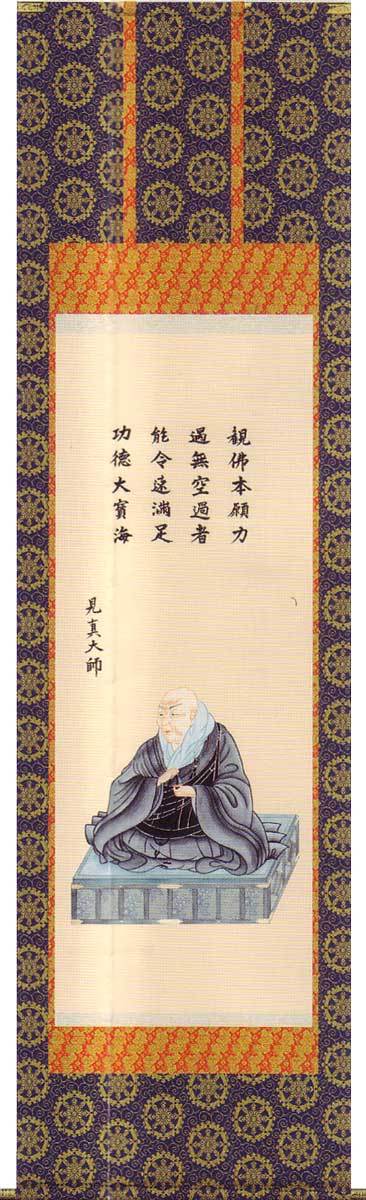 觀佛本願力
遇無空過者
能令速滿足
功德大寶海
見真大師